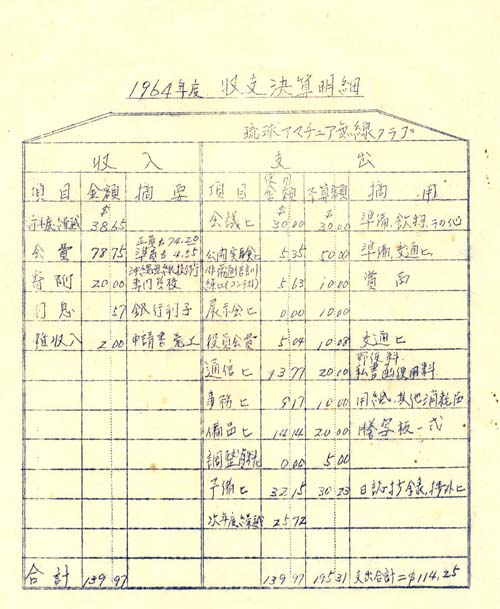 1964年度 収支決算明細
琉球アマチュア無線クラブ
収入 支出
項目 金額 摘要 項目 使用金額 予算額 摘用
前年度繰越 $38.65 会議ヒ $30.00 $30.00 準備、飲物、その他
会費 78.75 正員 $74.20 準員 $4.55 公開実験ヒ 5.35 50.00 準備、交通ヒ
寄附 20.00 専門学校 非常通信訓練ヒ(コンテスト) 5.63 10.00 賞品
利息 .57 銀行利子 展示会ヒ 0.00 10.00
雑収入 2.00 申請書 役員会費 5.04 10.08 交通ヒ
通信ヒ 13.77 20.00 郵便料 私書函使用料
事務ヒ 9.17 10.00 用紙、其他消耗品
備品ヒ 14.14 20.00 謄写板一式
調整資料 0.00 5.00
予備ヒ 32.15 30.23
次年度繰越 25.72
合計 139.97 139.97 195.31 支出合計=$114.25